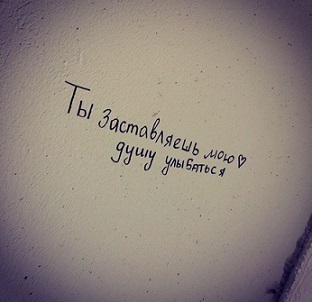 Ты заставляешь мою♡
душу улыбаться